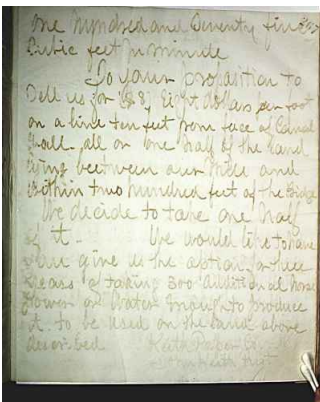 One hundred and Seventy five
Cubic feet pr minute
To your proposition to
Sell us for $8, Eight dollars per foot
on a line ten feet from face of Canal
Wall, all or one half of the land
lying between our Mill and
Within two hundred feet of the Bridge
We decide to take one half
of it. We would like to have
you give us the option for three
years of taking 300 additional horse
power or Water enough to produce
it to be used on the land above
described. Keith Paper Co.
John Keith